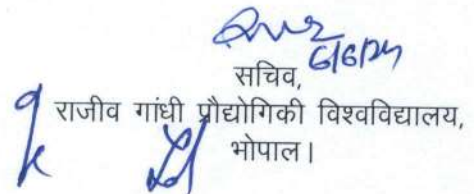 6/6/24
सचिव,
राजीव गांधी प्रौद्योगिकी विश्वविद्यालय,
भोपाल।